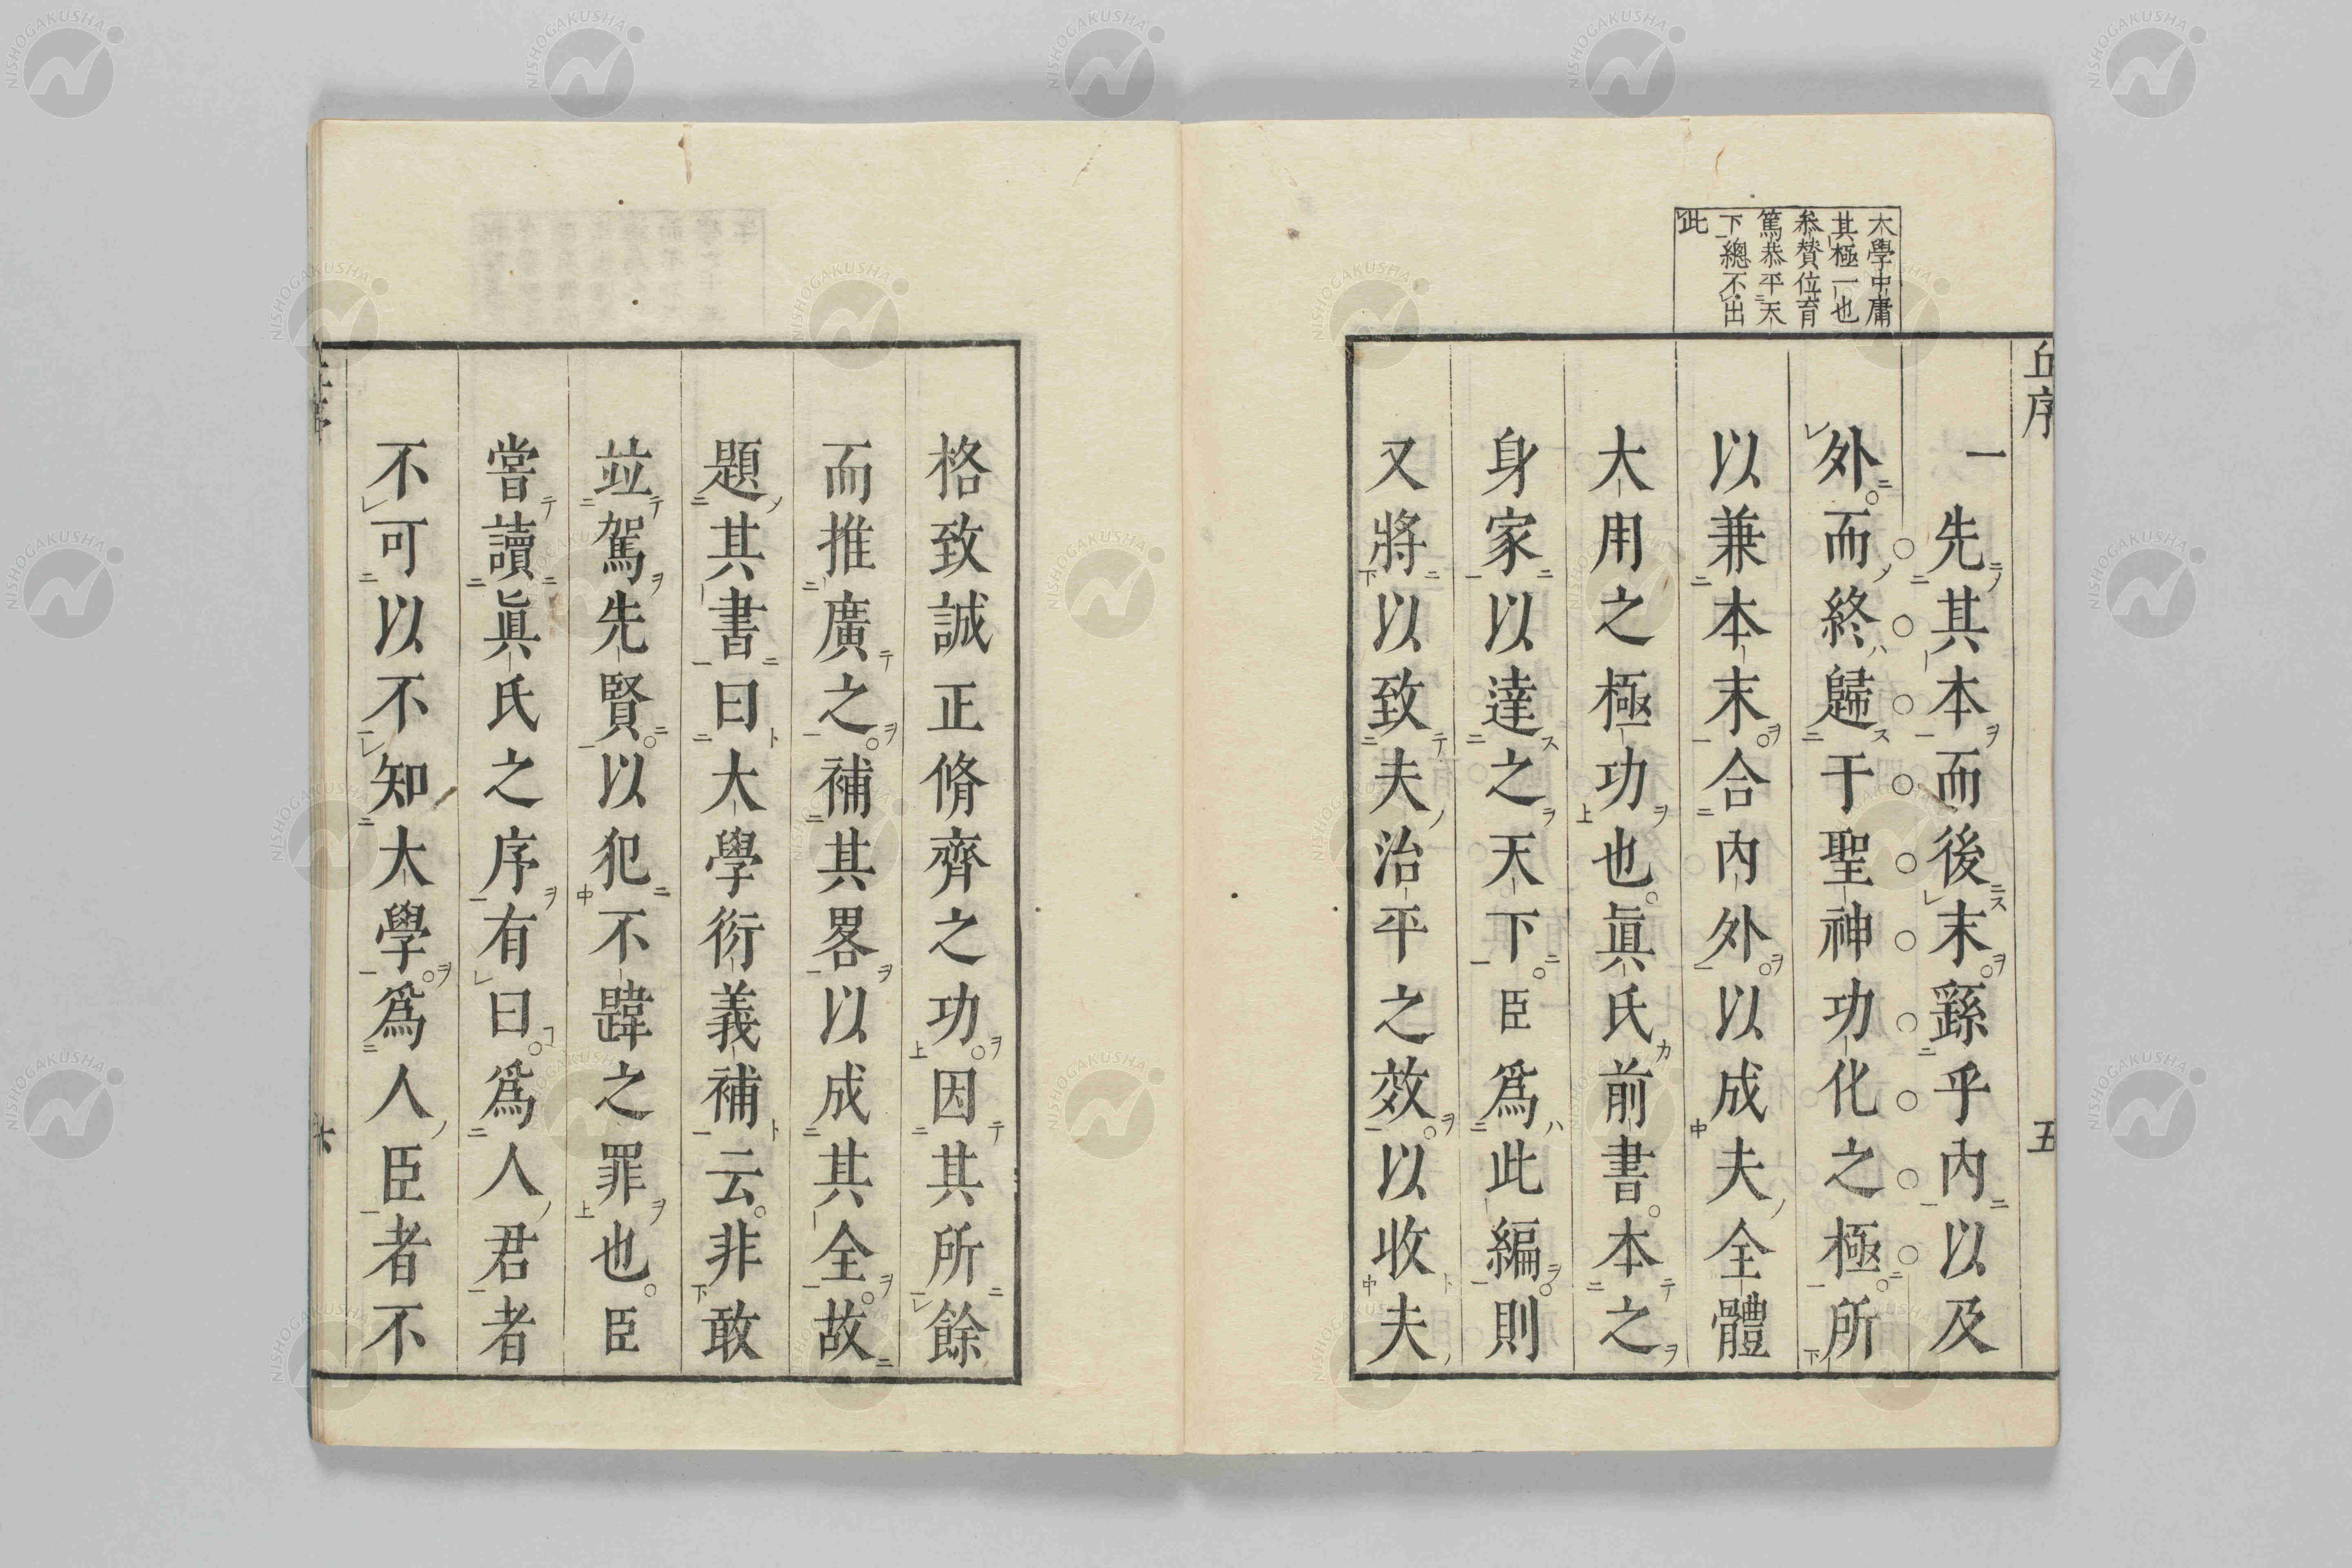 丘序
五
大學中庸
其極一也
叅賛位育
篤恭平天
下總不出
此
先其本而後末繇乎內以及
外而終歸于聖神功化之極所
以兼本末合內外以成夫全體
大用之極功也眞氏前書本之
身家以達之天下臣爲此編則
又將以致夫治平之效以收夫
格致誠正脩齊之功因其所餘
而推廣之補其畧以成其全故
題其書曰大學衍義補云非敢
竝駕先賢以犯不韙之罪也臣
嘗讀眞氏之序有曰爲人君者
不可以不知大學爲人臣者不
NISHOGAKUSHA